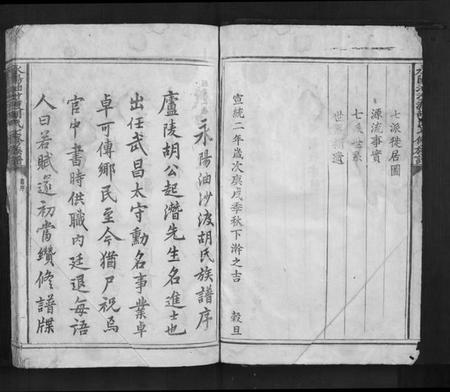 七派徙居圖
源流事實
七
世
遺
宣統二年歲次庚戌季秋下澣之吉 穀旦
永陽油沙渡胡氏族譜序
廬陵胡公起潛先生名進士也
出任武昌太守勳名事業卓
卓可傳鄉民至今猶尸祝焉
官中書時供職內廷退每語
人曰若賦遂初當纘修譜牒